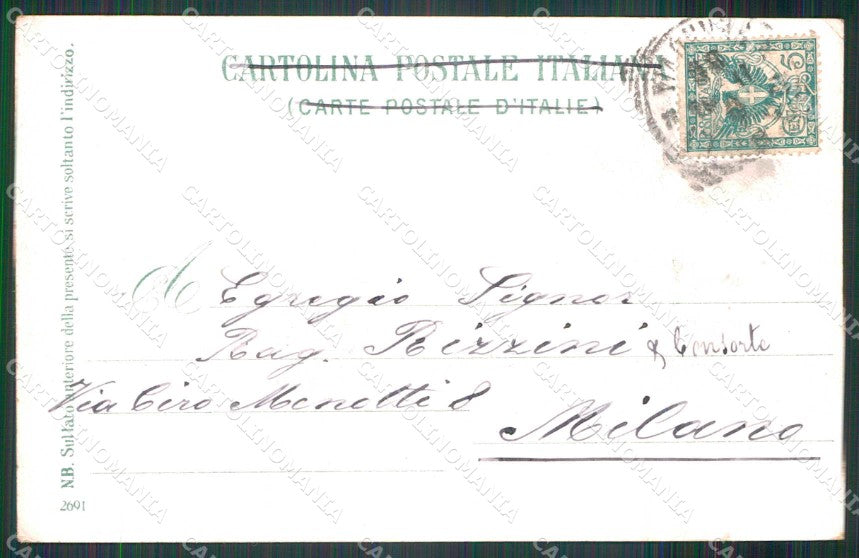 CARTOLINA POSTALE ITALIANA
(CARTE POSTALE D'ITALIE)
N.B. Sul lato anteriore della presente si scrive soltanto l'indirizzo.
A Egregio Signor
Rag. Rizzini & Consorte
Via Ciro Menotti 8
Milano
2691
CARTOLINOMANIA